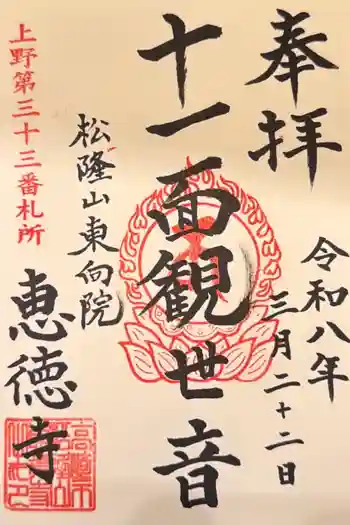 奉拝
令和八年
三月二十二日
十一面観世音
松隆山東向院
恵徳寺
上野第三十三番札所